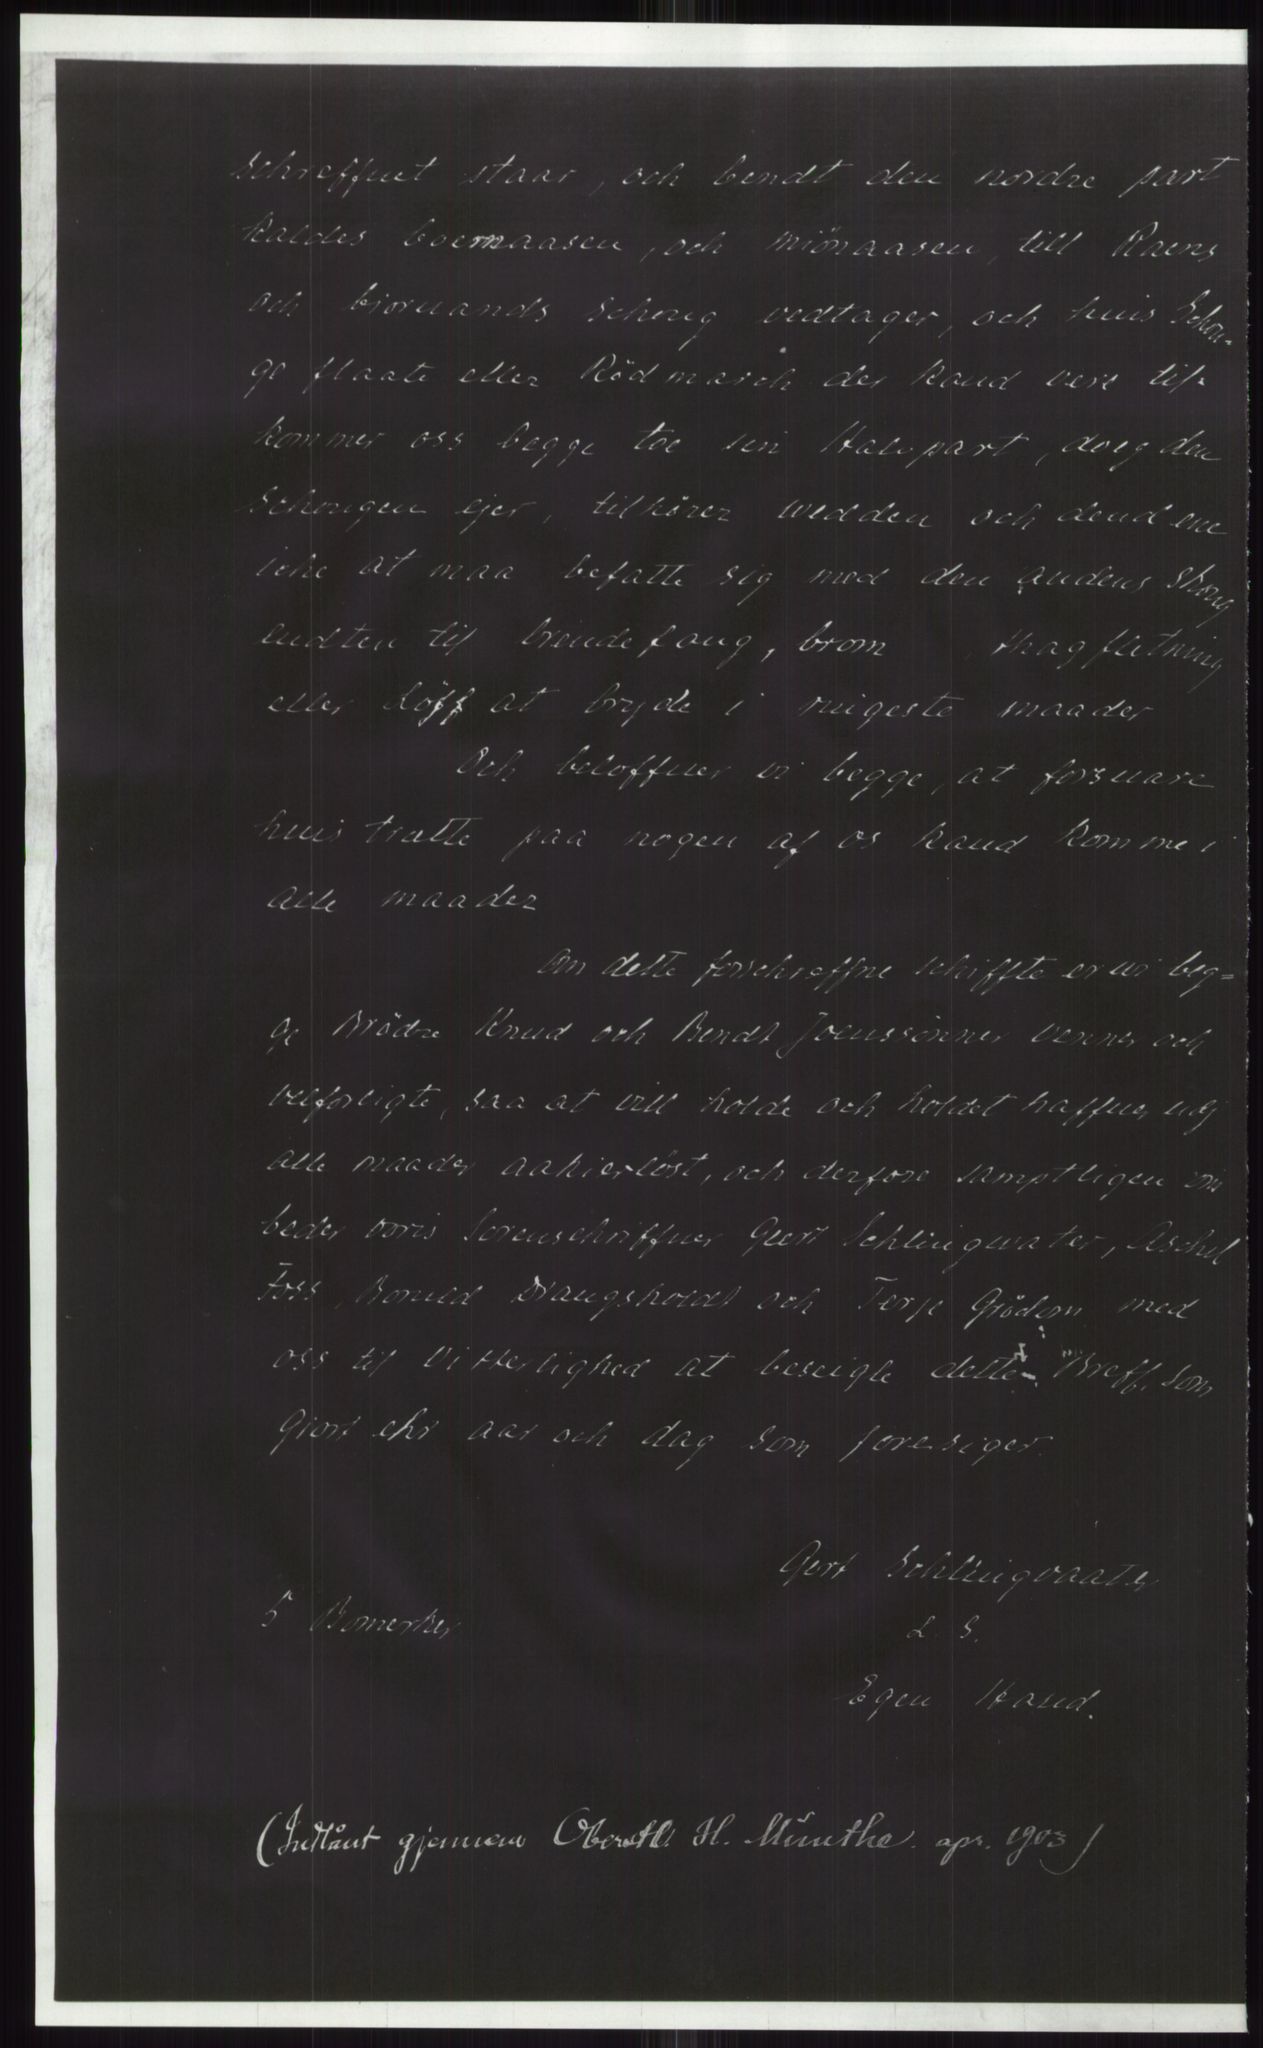 schreffuet staar, och bendt den nordre part
kaldes boernaasen, och miönaasen, till Raens
och biornands schoug vedtager, och huis Schou-
ge flaate eller Rödmarch der kand vere til-
kommer oss begge toe sin Halvpart, doeg den
Schougen ejer, tilhörer wedden och dend ene
iche at maa befatte sig med den andens Skoug
endten til brendefang, brom , thagfletning
eller Löff at bryde i ringeste maader
Och beloffuer vi begge, at forsuare
huis trætte paa nogen af os kand komme i
alle maader
Om dette forschreffne schiffte er wi beg=
ge Brödre Knud och Bendt Joenssönner venner och
velforligte, saa at vill holde och holdet haffue, udj
alle maader aakierlöst, och derfore samptligen
beder voris Sorenschriffuer Gert Schlingwater, Aschel
Foss, Bonuld Drangsholdt och Terje Grödem med
oss til Vitterlighed at beseigle dette Breff, som
giort ehr aar och dag som foresiger.
Gert Schlingvaater
5 Bomerker L. S.
Egen Hand.
(Indlånt gjennem Oberstl. H. Munthe. apr. 1903)